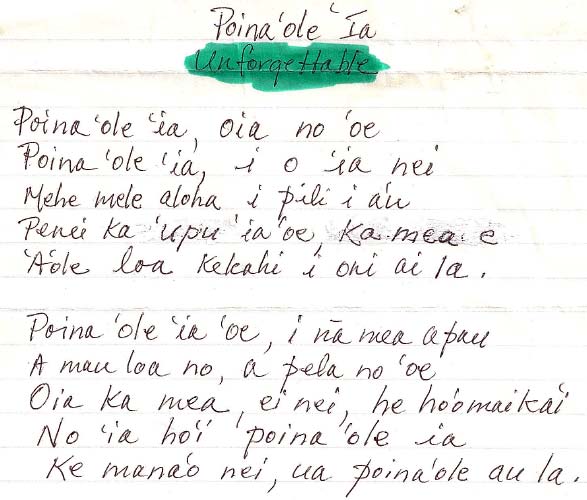 Poina 'ole 'Ia
Unforgettable
Poina 'ole 'ia, oia no 'oe
Poina 'ole 'ia, i o 'ia nei
Mehe mele aloha i pili i a'u
Penei ka 'upu 'ia 'oe, ka mea e
'A'ole loa kekahi i oni ai la.
Poina 'ole 'ia 'oe, i nā mea apau
A mau loa no, a pela no 'oe
Oia ka mea, ei nei, he ho'omaika'i
No 'ia ho'i 'poina 'ole ia
Ke mana'o nei, ua poina'ole au la.